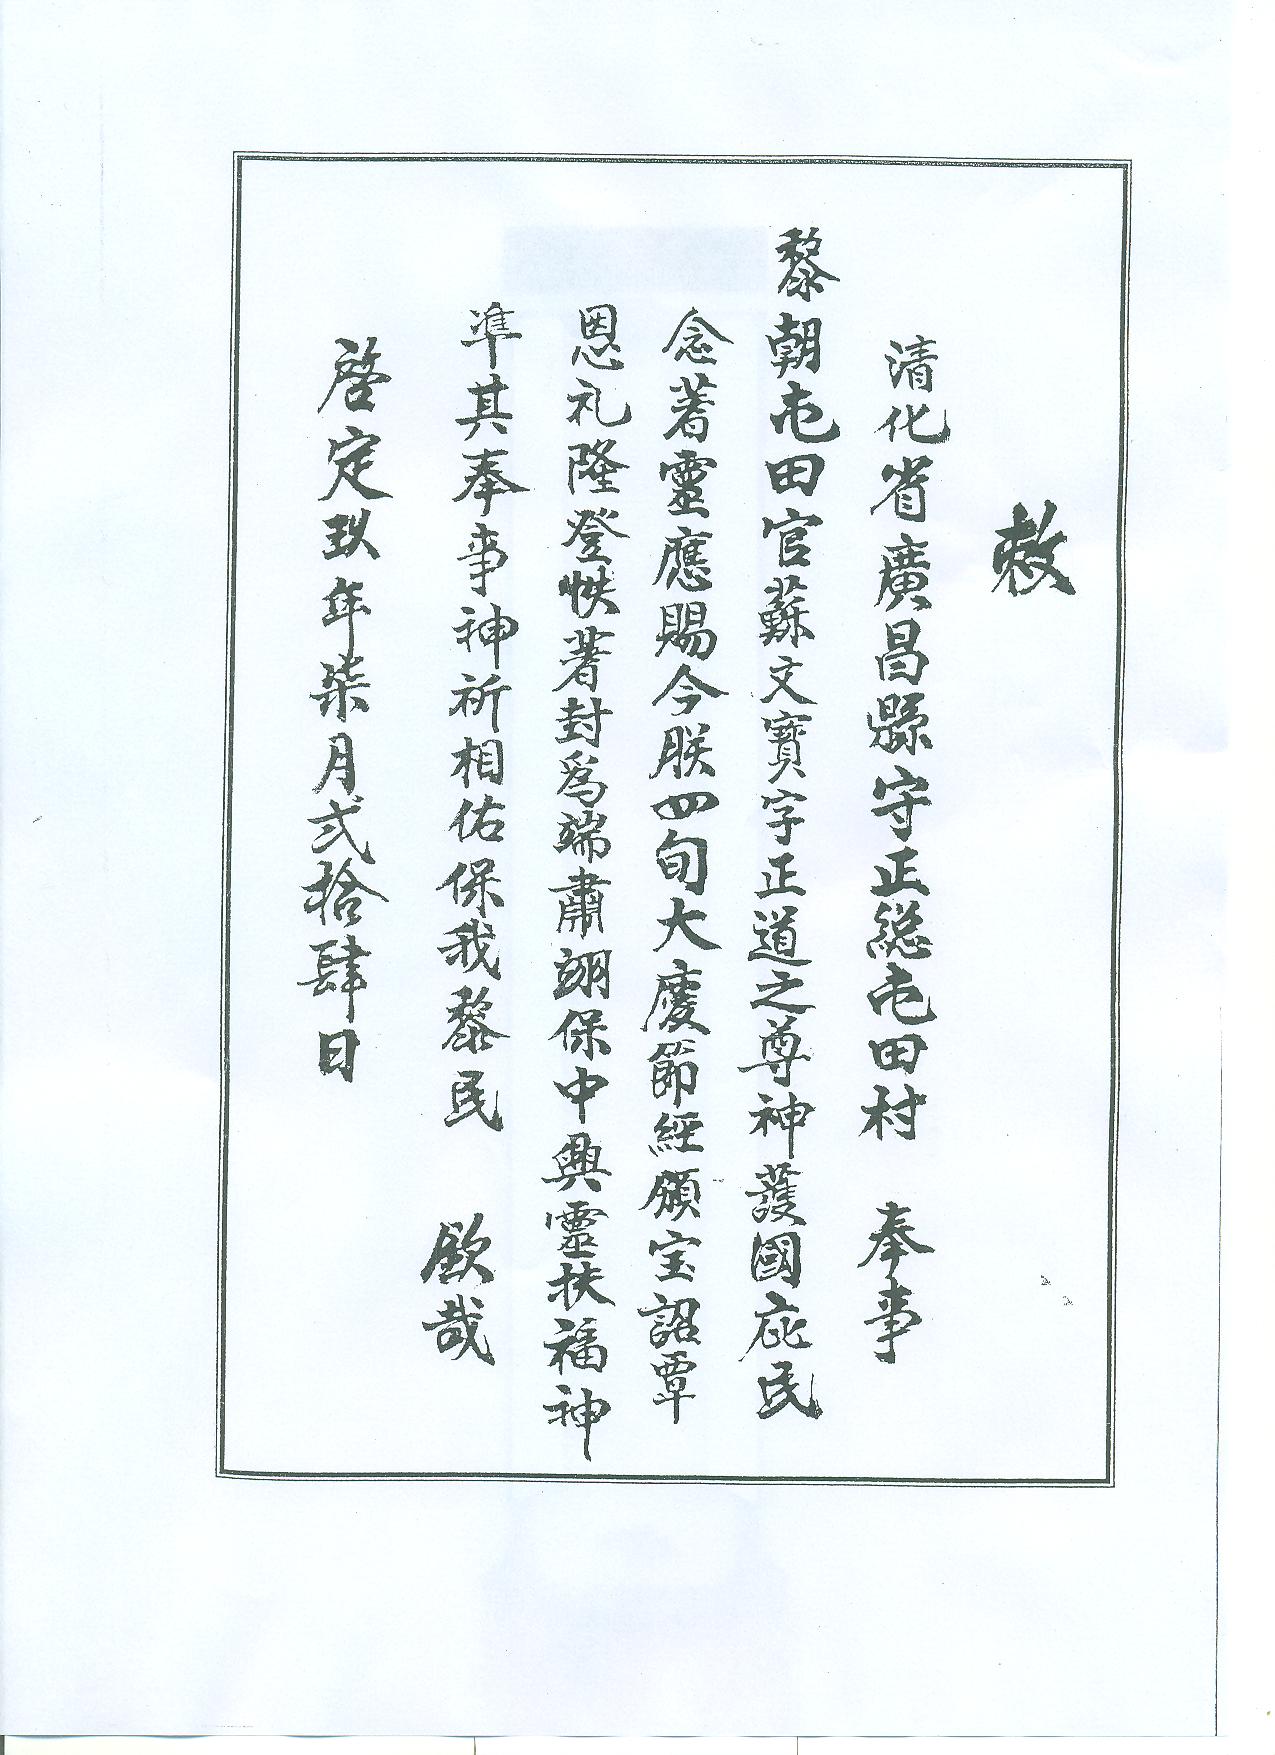 敕
清化省廣昌縣守正總屯田村　奉事
黎朝屯田官蘇文寶字正道之尊神護國庇民
念著靈應賜今朕四旬大慶節經頒宝詔覃
恩礼隆登怢著封爲端肅翊保中興靈扶福神
準其奉事神祈相佑保我黎民　欽哉
啓定玖年柒月弍拾肆日